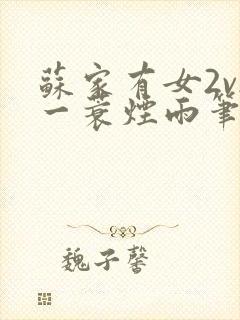 蘇家有女2v
一蓑煙雨筆
魏子馨